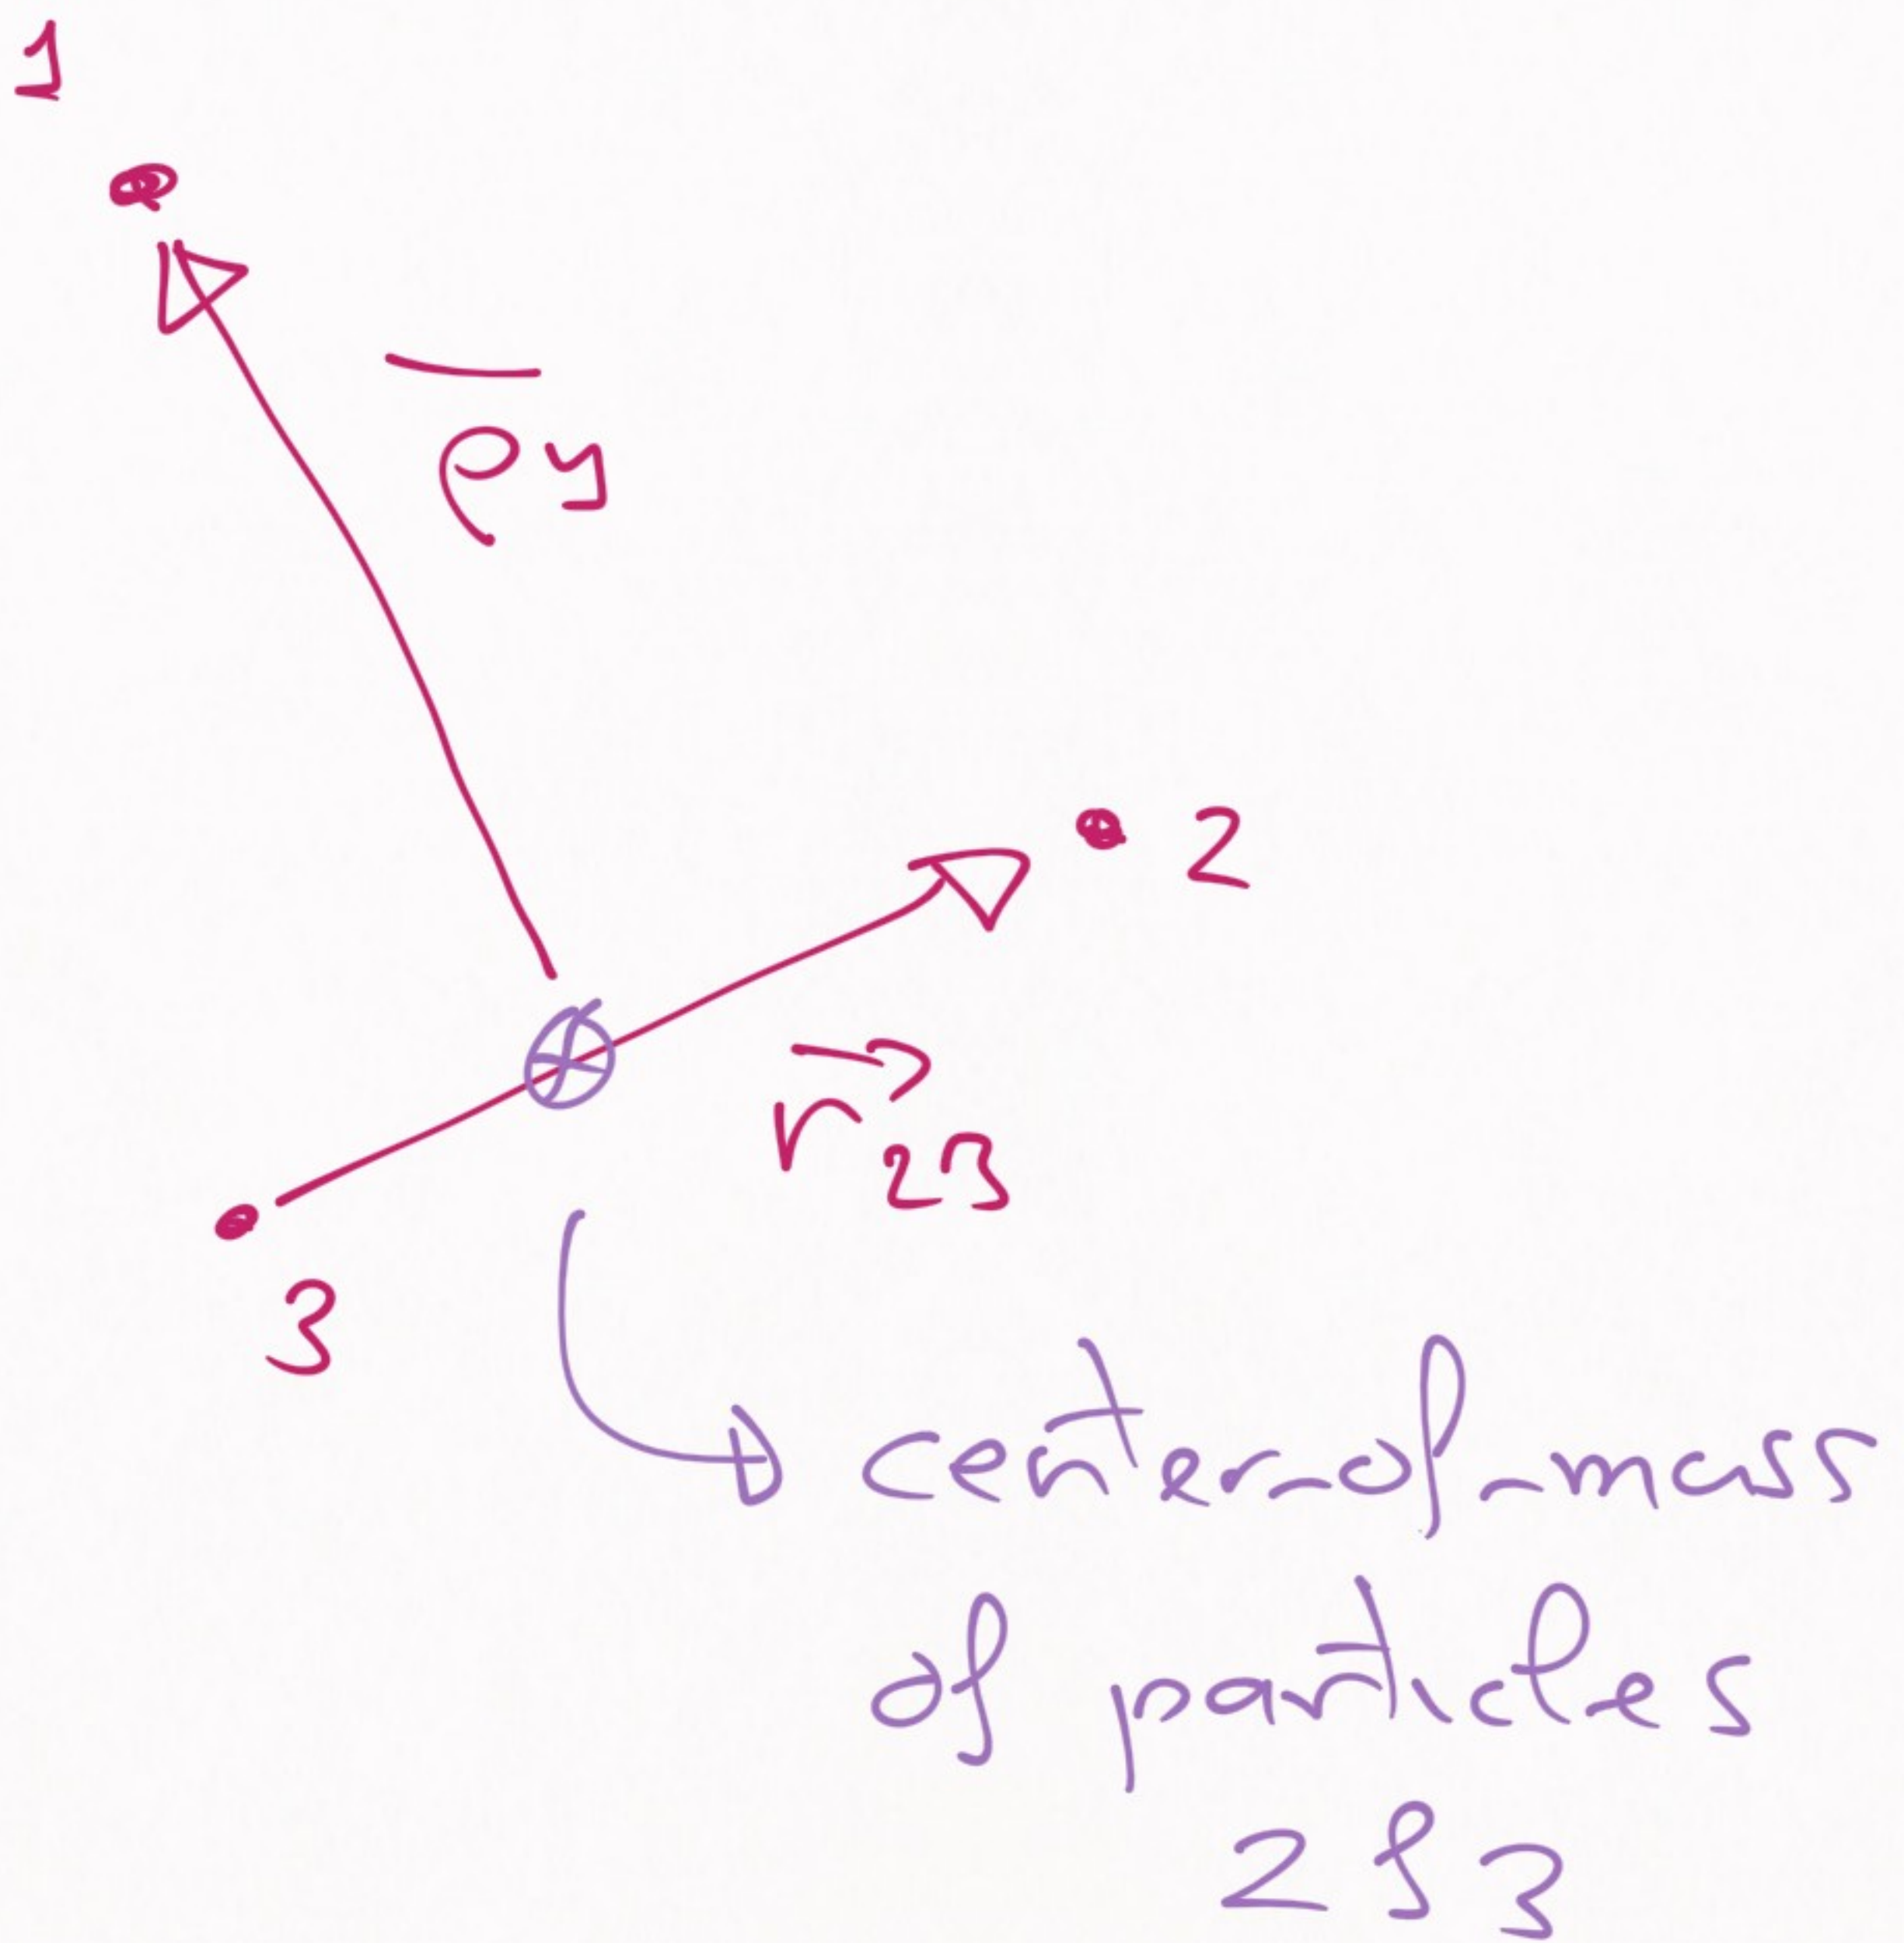 1
ρ̅₁
2
r⃗₂₃
3
center-of-mass
of particles
2 & 3